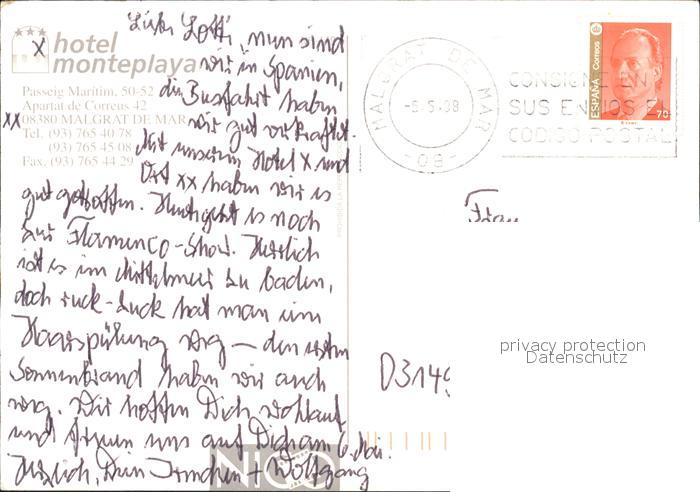 Liebe Lotti, nun sind
x hotel
monteplaya
wir in Spanien,
die Busfahrt haben
Passeig Marítim, 50-52
Apartat de Correus 42
xx 08380 MALGRAT DE MAR
wir gut verkraftet.
Tel. (93) 765 40 78
(93) 765 45 08
Fax. (93) 765 44 29
Mit unserem Hotel x und
Ort xx haben wir es
gut getroffen. Heute geht es noch
zur Flamenco-Show. Herrlich
ist es im Mittelmeer zu baden,
doch ruck-zuck hat man eine
Haarspülung weg – den ersten
Sonnenbrand haben wir auch
weg. Wir hoffen Dich wohlauf
und freuen uns auf Dich am 6. Mai.
Herzlich, Dein + Wolfgang
NiCO
MALGRAT DE MAR
-5.5.98
-08-
CONSIGNE EN
SUS ENVIOS EL
CODIGO POSTAL
ESPAÑA Correos
70
Frau
privacy protection
Datenschutz
D3149